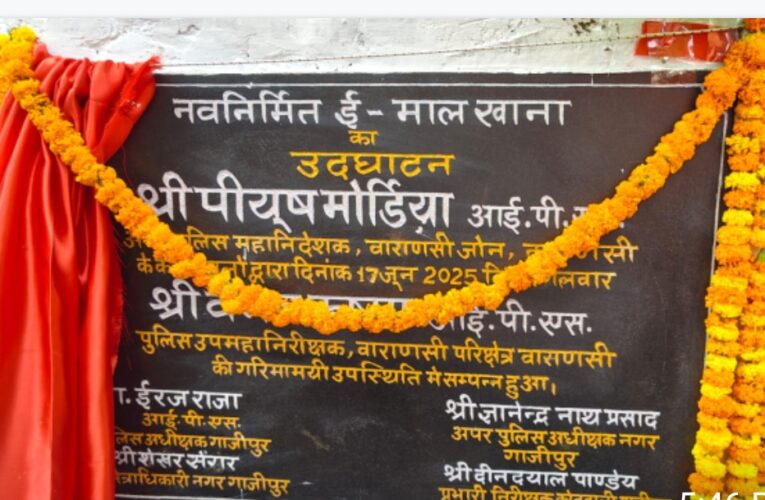 नवनिर्मित ई - मालखाना
का
उदघाटन
श्री पीयूष मोर्डिया आई.पी.
पुलिस महानिदेशक, वाराणसी जोन,
द्वारा दिनांक 17 जून 2025
श्री आई.पी.एस.
पुलिस उपमहानिरीक्षक, वाराणसी परिक्षेत्र वाराणसी
की गरिमामयी उपस्थिति में सम्पन्न हुआ।
ईरज राजा
आई.पी.एस.
अधीक्षक गाजीपुर
श्री शेखर सेंगर
नगर गाजीपुर
श्री ज्ञानेन्द्र नाथ प्रसाद
अपर पुलिस अधीक्षक नगर
गाजीपुर
श्री दीनदयाल पाण्डेय
प्रभारी निरीक्षक